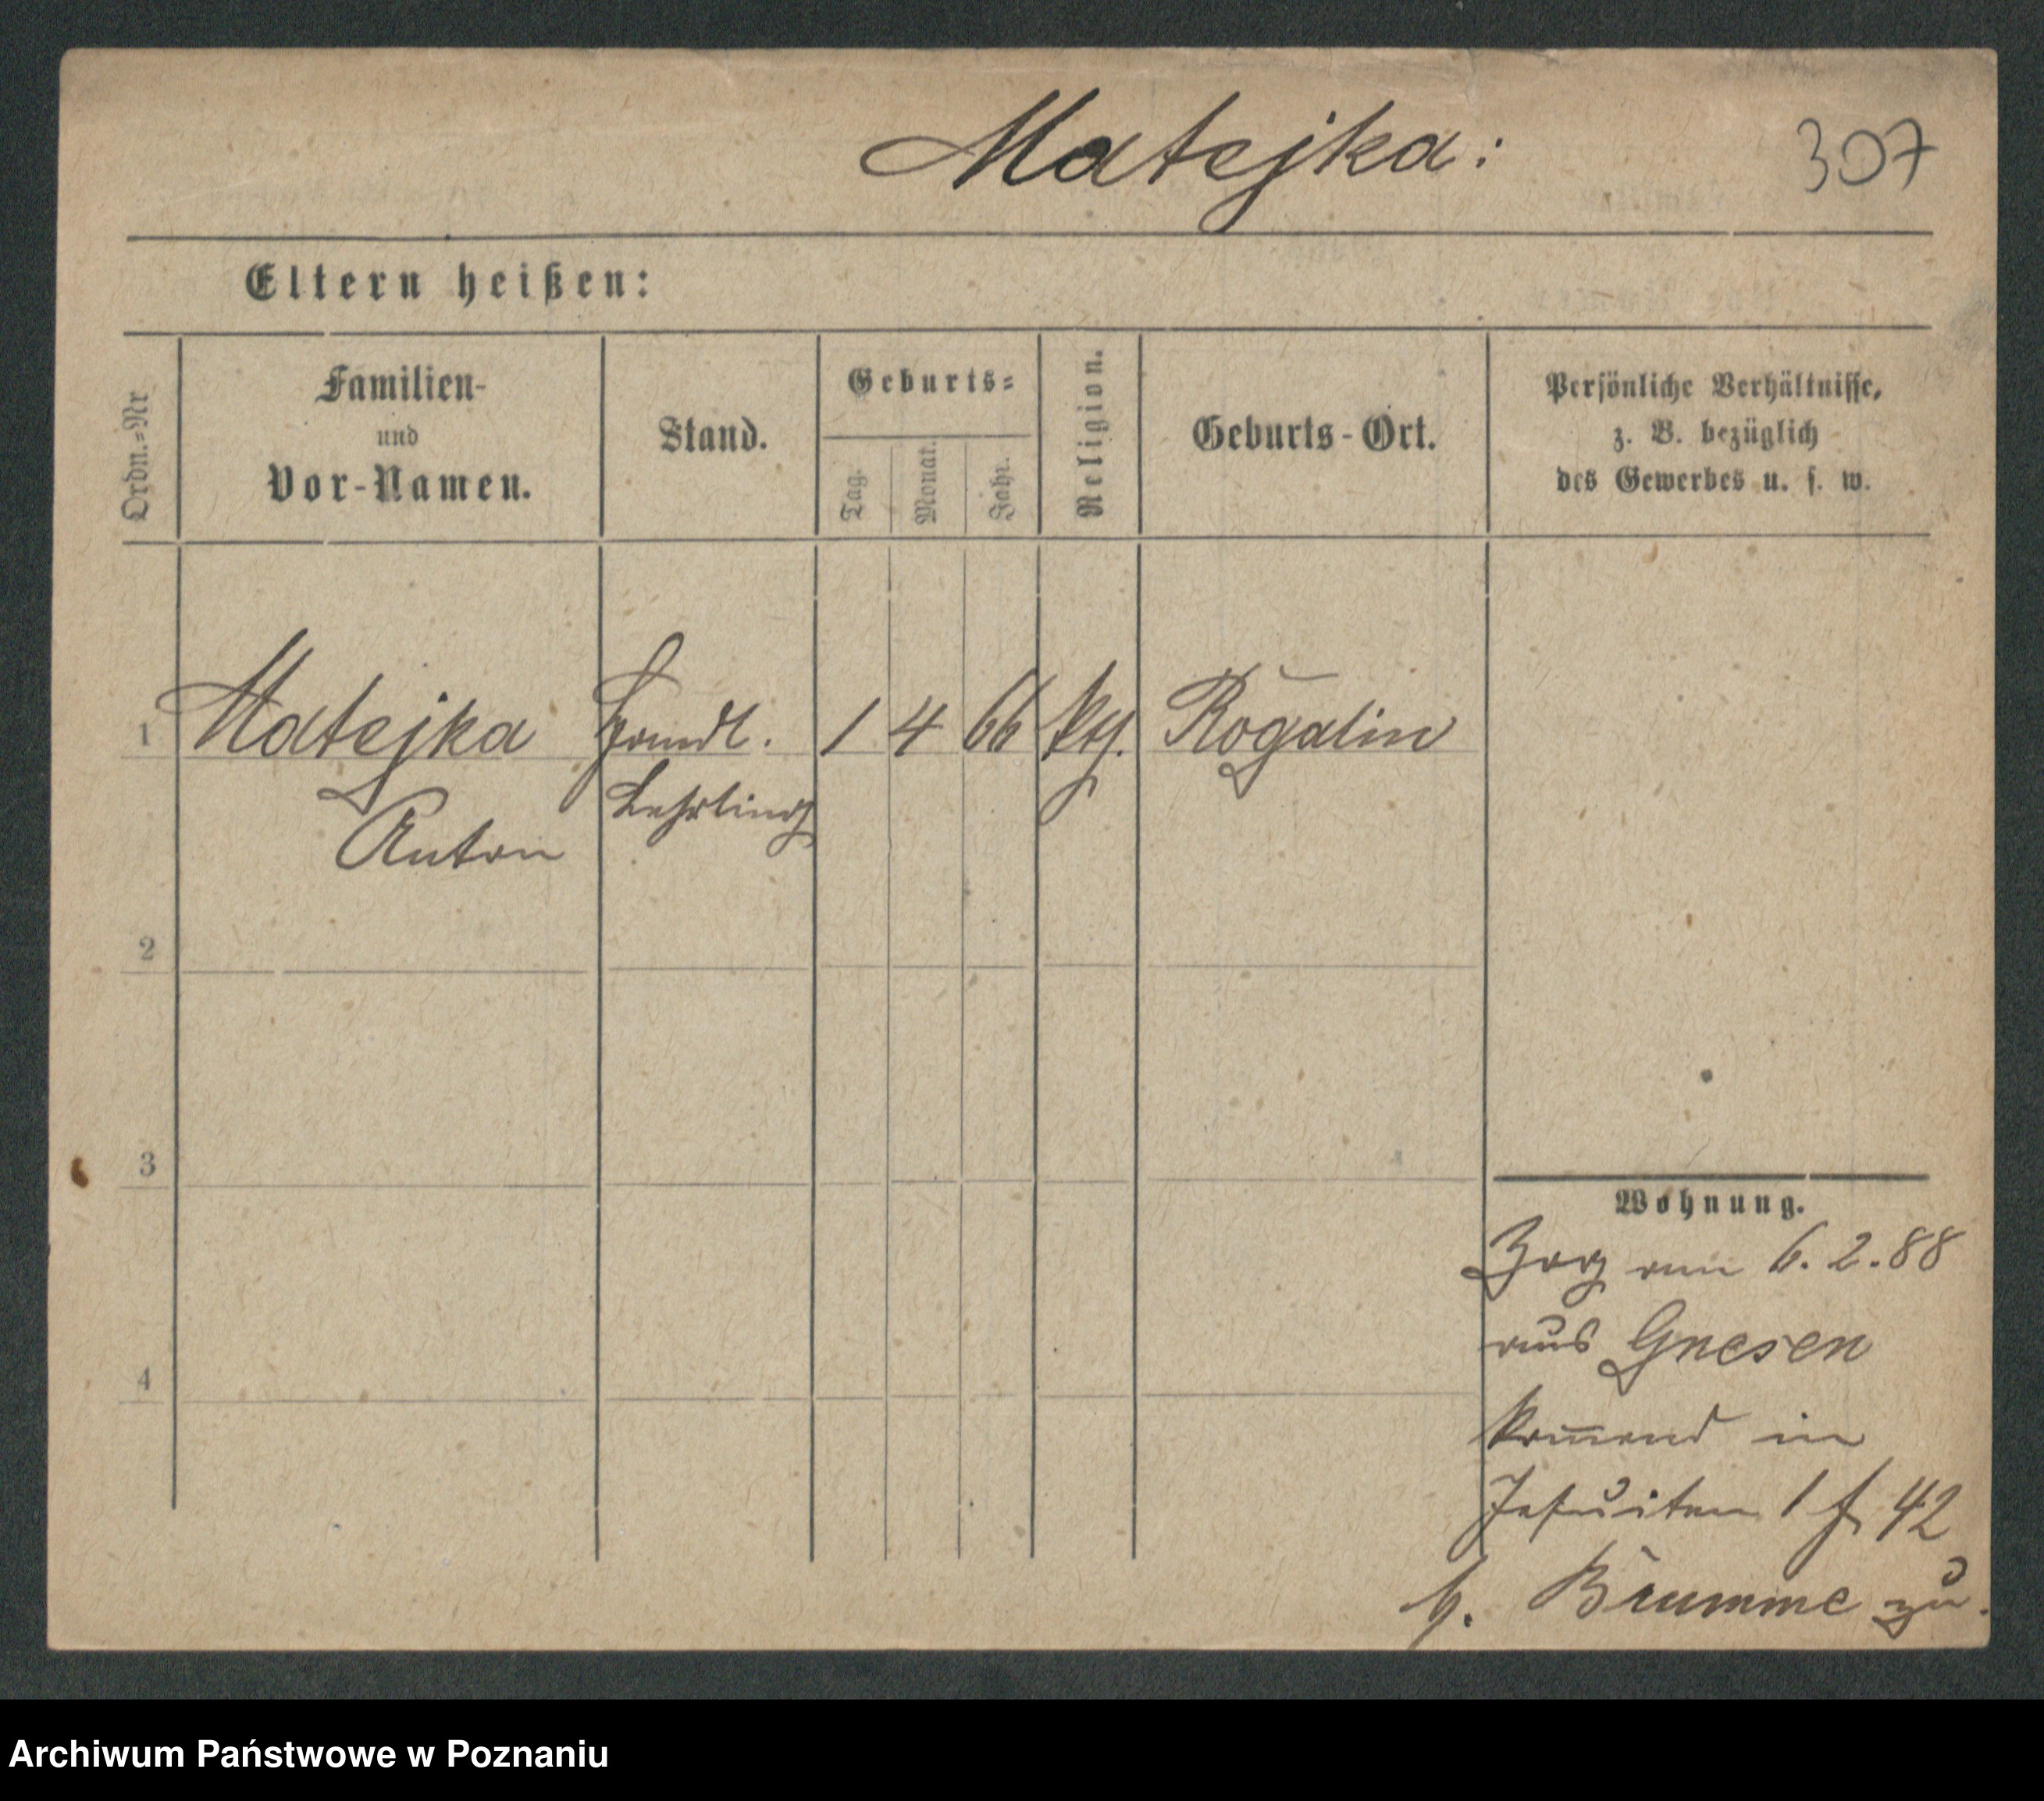 Matejka:
307
Eltern heißen:
Ordn.=Nr
Familien-
und
Vor-Namen.
Stand.
Geburts=
Tag.
Monat.
Jahr.
Religion.
Geburts-Ort.
Persönliche Verhältnisse,
z. B. bezüglich
des Gewerbes u. s. w.
1 Matejka Handl. 1 4 66 kth. Rogalin
Lehrling
Anton
2
3
4
Wohnung.
Zog am 6.2.88
aus Gnesen
kom̅end in
Jesuiten 1 f 42
b. Brumme zu.
Archiwum Państwowe w Poznaniu